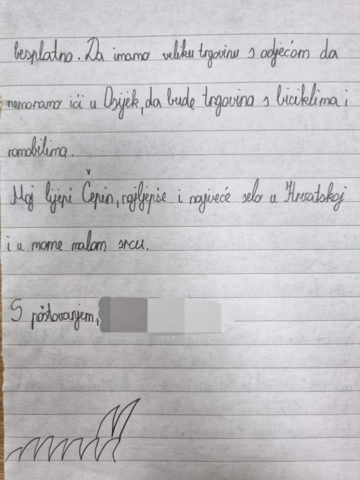 besplatno. Da imamo veliku trgovinu s odjećom da
nemoramo ići u Osijek, da bude trgovina s biciklima i
romobilima.
Moj lijepi Čepin, najljepše i najveće selo u Hrvatskoj
i u mome malom srcu.
S poštovanjem,